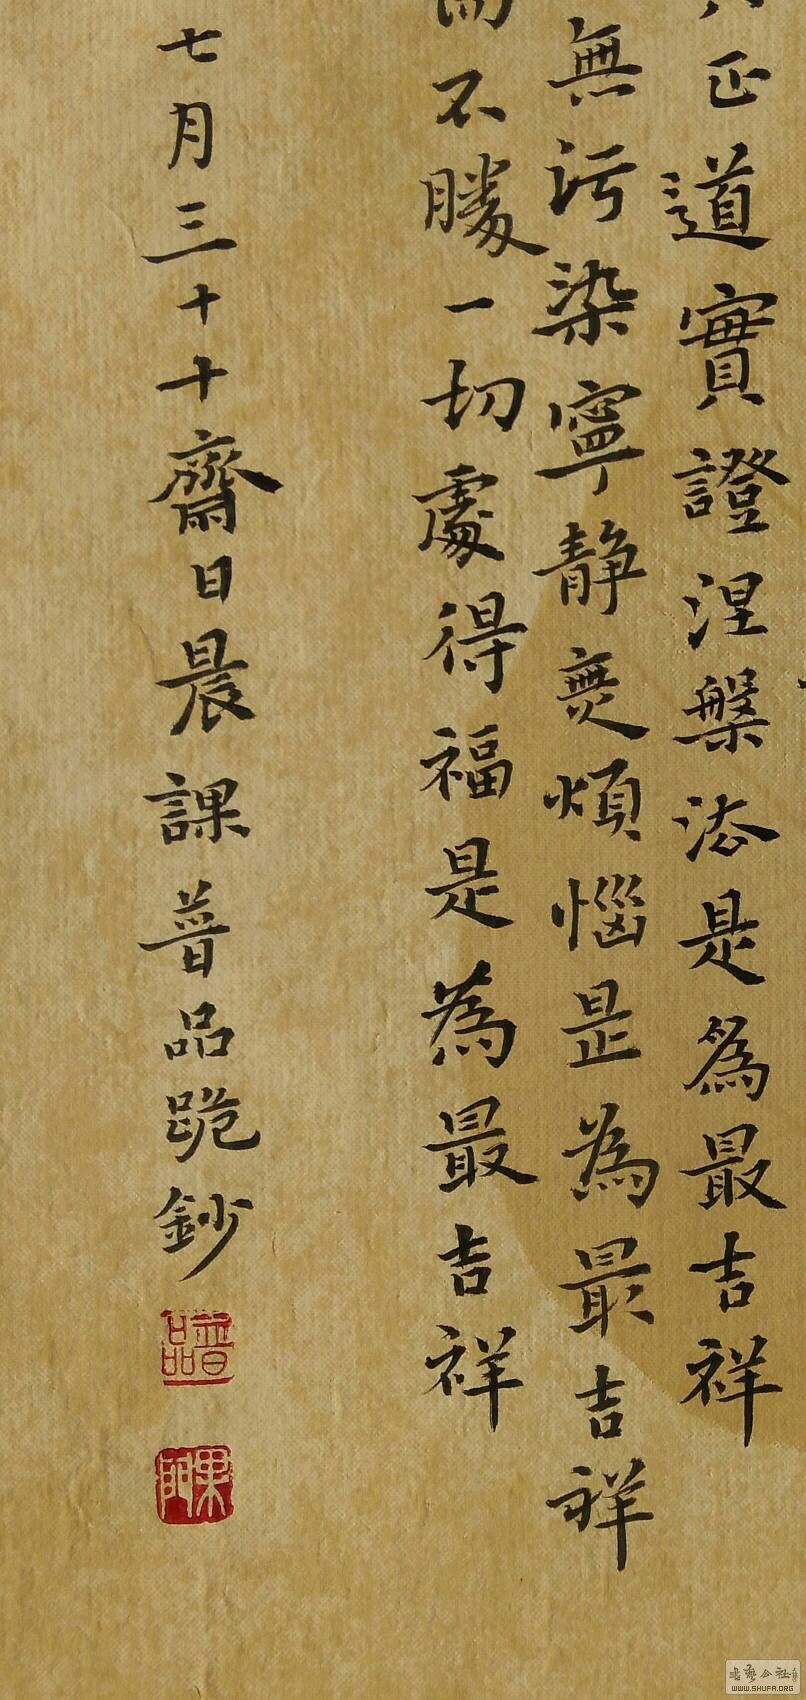 正道實證涅槃法是為最吉祥
無污染寧靜無煩惱是為最吉祥
而不勝一切處得福是為最吉祥
七月三十十齋日晨課普品跪鈔
普品
WWW.SHUFA.ORG